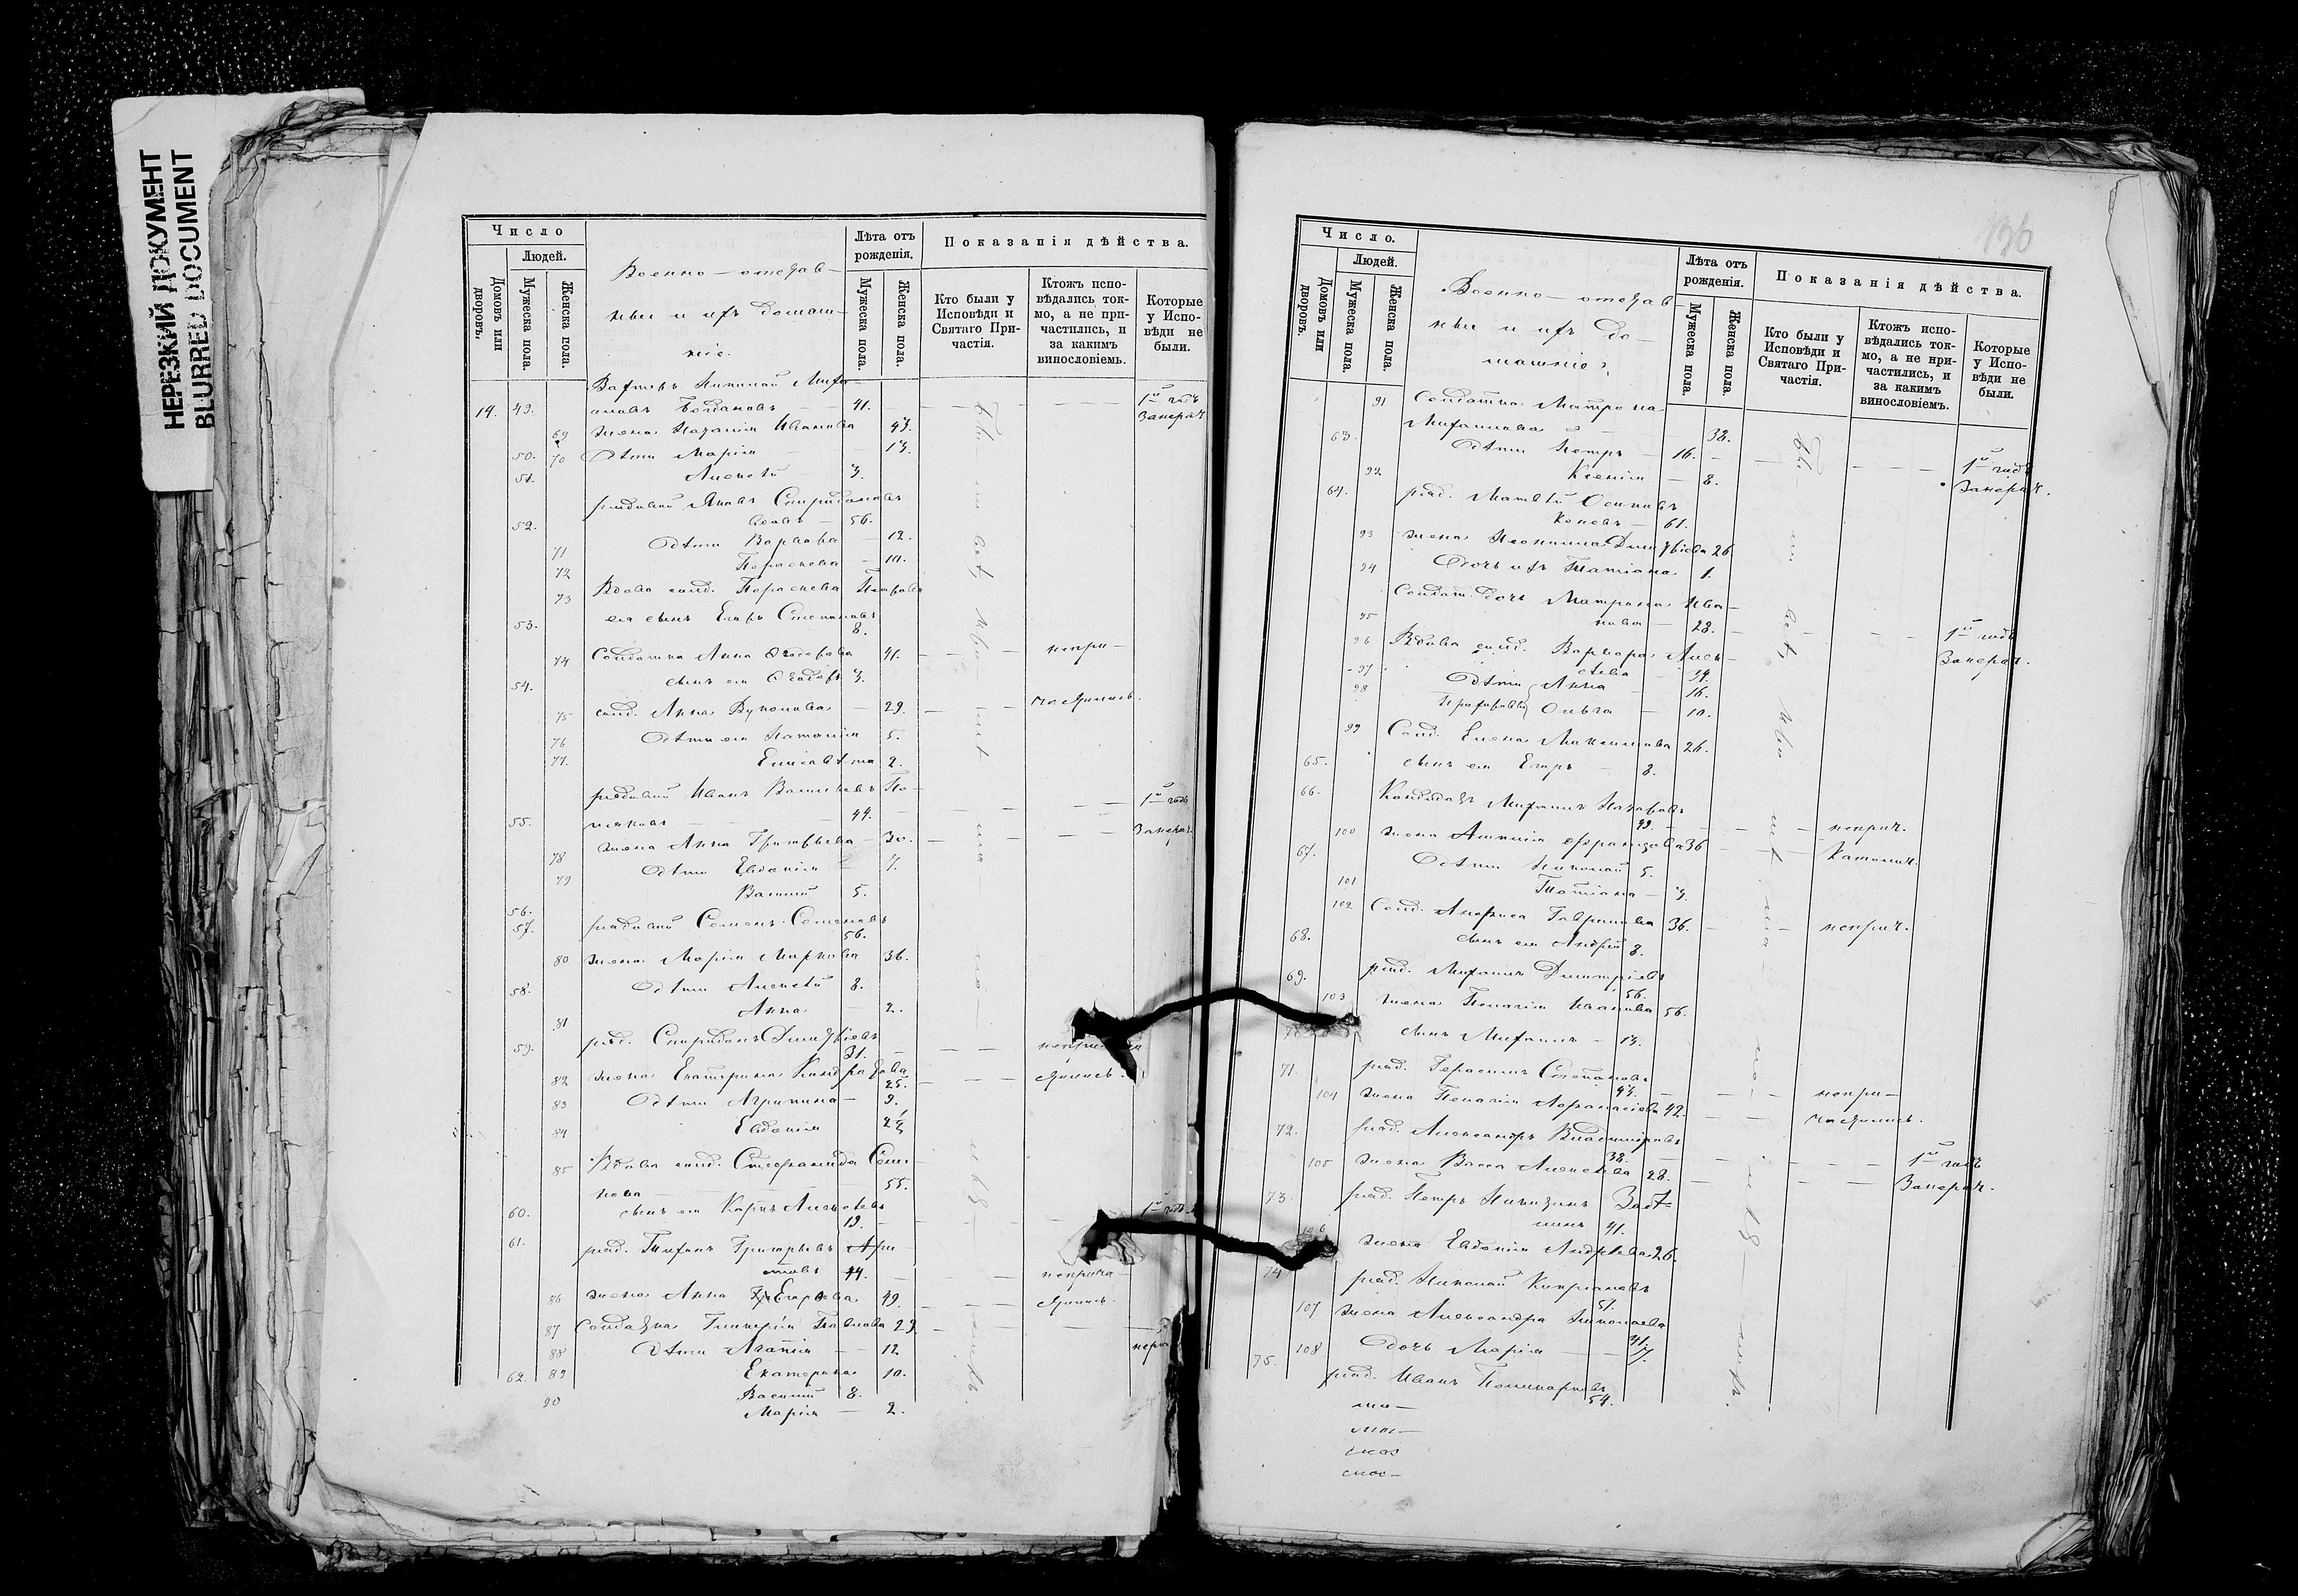 НЕРЕЗКИЙ ДОКУМЕНТ
BLURRED DOCUMENT
Число
Людей.
Домовъ или дворовъ.
Мужеска пола.
Женска пола.
Военно-отстав-
ные и ихъ домаш-
ніе.
Лѣта отъ рожденія.
Мужеска пола.
Женска пола.
Показанія дѣйства.
Кто были у Исповѣди и Святаго Причастія.
Ктожъ исповѣдались токмо, а не причастились, и за какимъ винословіемъ.
Которые у Исповѣди не были.
Вахтеръ Николай Миха-
14. 49. иловъ Богдановъ 41. 1й годъ
69 жена Наталія Иванова 43.
50. 70 Дѣти Марія 13.
51. Алексѣй 3.
рядовой Яковъ Спиридоновъ
52. вдовъ 56.
71 Дѣти Варвара 12.
72 Параскева 10.
73 Вдова солд. Параскева Петрова
53. ея сынъ Егоръ Степановъ 8.
74 Солдатка Анна Ѳедорова 41. непри-
54. сынъ ея Ѳедоръ 3.
75 солд. Анна 29. частились.
76 Дѣти ея Наталія 5.
77. Елисавета 2.
рядовой Иванъ Васильевъ По-
55. ляковъ 44. 1й годъ
78 жена Анна Григорьева 30.
79 Дѣти Евдокія 7.
56. Василій 5.
57. рядовой Семенъ Семеновъ 56.
80 жена Марія Маркова 36.
58. Дѣти Алексѣй 8.
81 Анна 2.
59. ряд. Спиридонъ Дмитріевъ 31.
82 жена Екатерина Кондратова 25.
83 Дѣти Агрипина 9.
84 Евдокія 2½
85 Вдова солд. Стефанида Семе-
нова 55.
60. сынъ ея Карпъ Алексѣевъ 19. 1й годъ
61. ряд. Тихонъ Григорьевъ
44. неприча-
86 жена Анна Егорова 49. стились.
87 Солдатка Гликерія Павлова 29.
88 Дѣти Агапія 12
62. 89 Екатерина 10.
Василій 8.
90 Марія 2.
136
Число.
Людей.
Домовъ или дворовъ.
Мужеска пола.
Женска пола.
Военно-отстав-
ные и ихъ до-
машніе.
Лѣта отъ рожденія.
Мужеска пола.
Женска пола.
Показанія дѣйства.
Кто были у Исповѣди и Святаго Причастія.
Ктожъ исповѣдались токмо, а не причастились, и за какимъ винословіемъ.
Которые у Исповѣди не были.
91 Солдатка Матрона
Михайлова 38.
63. Дѣти Петръ 16. 1й годъ
92 Ксенія 8.
64. ряд. Матвѣй Осиповъ
Коневъ 61.
93 жена Неонила Дмитріева 26
94 Дочь ихъ Татіана 1.
Солдат. дочь Матрона Ива-
95 нова 28. 1й годъ
96 Вдова солд. Варвара Алек-
сѣева 34.
97 Дѣти Анна 16.
98 Григорьевы Ольга 10.
99 Солд. Елена Максимова 26.
65. сынъ ея Егоръ 8.
66. Кандидатъ Михаилъ Назаровъ 49. неприч.
100 жена Францова 36 Католич.
67. Дѣти Николай 5.
101 Татіана 3.
102 Солд. Анфиса Гаврилова 36. неприч.
68. сынъ ея Андрей 8.
69. ряд. Михаилъ Дмитріевъ 56.
103 жена Пелагія Иванова 56.
70 сынъ Михаилъ 13.
71. ряд. Герасимъ Степановъ 43. непри-
104 жена Пелагія Аѳанасіева 42. частились.
72. ряд. Александръ Владиміровъ 38. 1й годъ
105 жена Васса Алексѣева 28.
73. ряд. Петръ Никитинъ
41.
106 жена Евдокія Андреева 26.
74 ряд. Николай Кипріановъ 51.
107 жена Александра Николаева 41.
108 Дочь Марія 7.
75. ряд. Иванъ Поликарповъ 54.